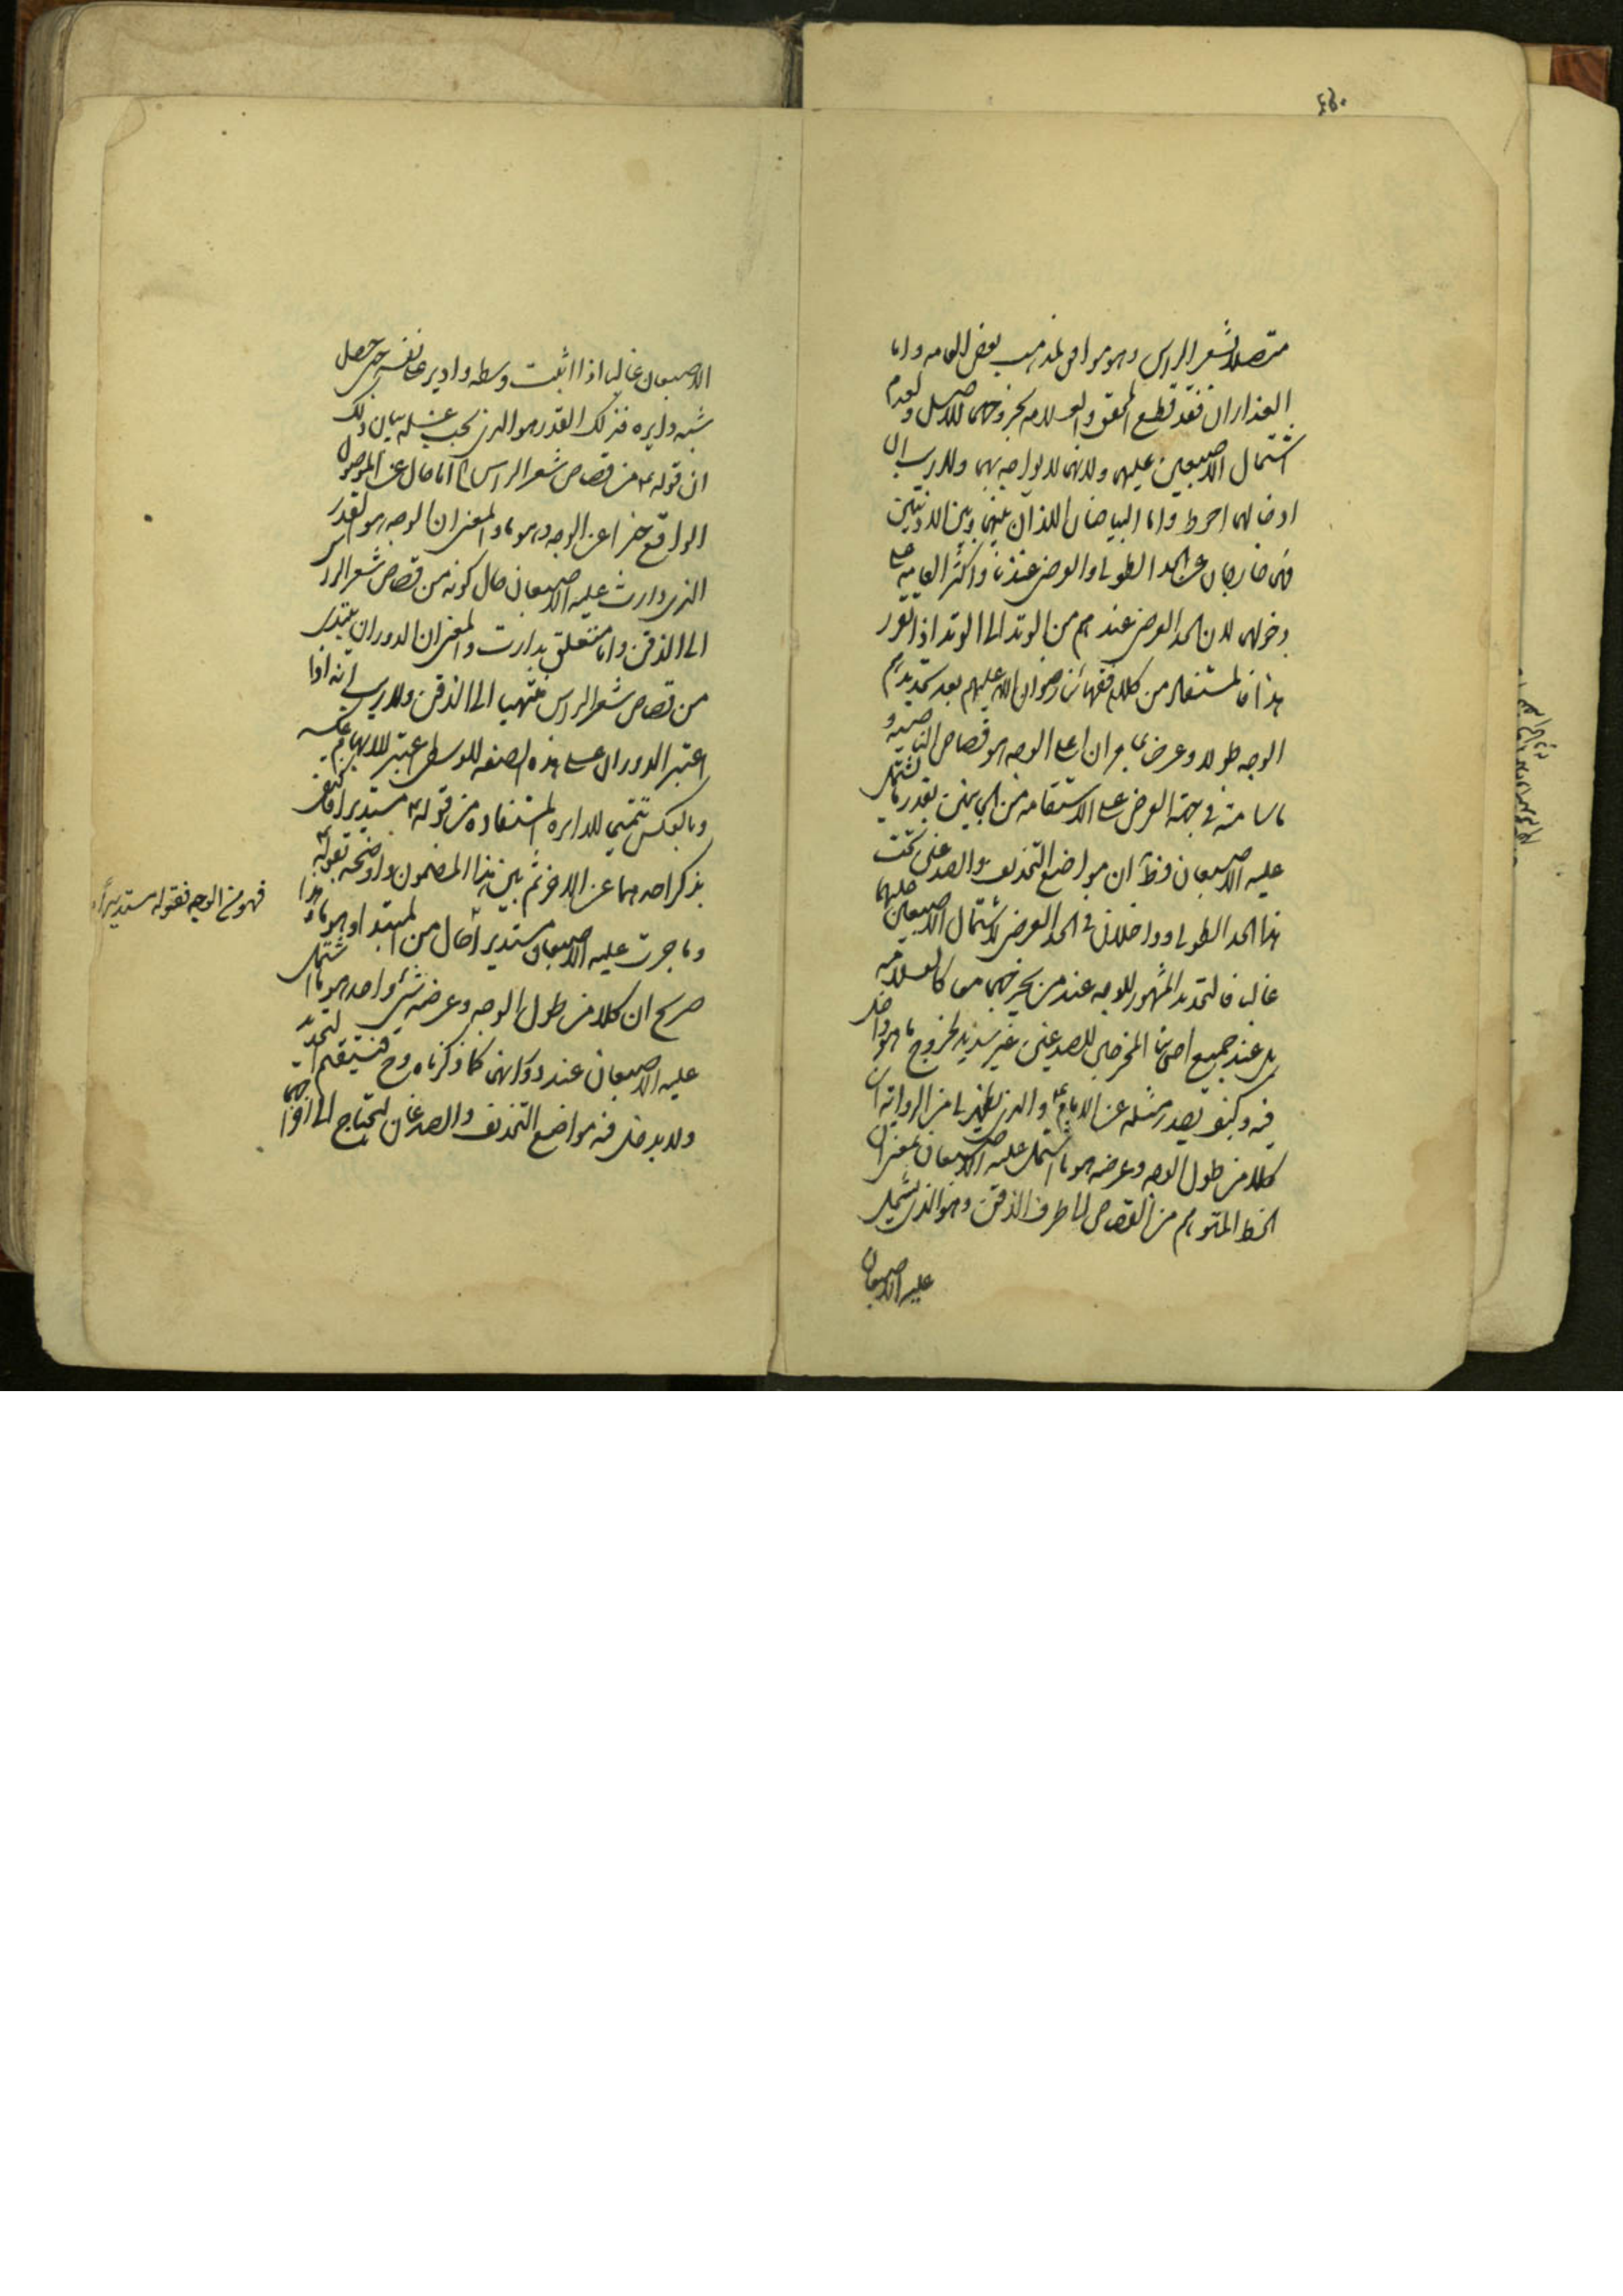 متصلا بشعر الراس وهو موافق لمذهب بعض العامه واما
العذاران فقد قطع المحقق والعلامه بخروجهما للاصل ولعدم
اشتمال الاصبعين عليهما ولانهما لا يواجه بهما ولا ريب ان
ادخالهما احوط واما البياضان اللذان بينهما وبين الاذنين
فهما خارجان عن الحد الطولى والعرضى عندنا واكثر العامه على
دخولهما لان الحد العرضى عندهم من الوتد الى الوتد اذا تقرر
هذا فالمستفاد من كلام فقهائنا رضوان الله عليهم بعد تحديدهم
الوجه طولا وعرضا بما مر ان اعلى الوجه هو قصاص الناصيه و
ما سامته في جهة العرض على الاستقامه من الجانبين بقدر ما يشتمل
عليه الاصبعان فظهر ان مواضع التحذيف والصدغين تحت
هذا الحد الطولى وداخلان في الحد العرضى لاشتمال الاصبعين عليهما
غالبا فالتحديد المشهور للوجه عند من يخرجهما معا كالعلامه
بل عند جميع اصحابنا المخرجين للصدغين غير سديد لخروج ما هو داخل
فيه وكيف يصدر مثله عن الامام ع والذى يظهر لى من الروايه ان
كلا من طول الوجه وعرضه هو ما اشتمل عليه الاصبعان بمعنى ان
الخط المتوهم من القصاص الى طرف الذقن وهو الذى يشتمل
عليه الاصبعان
الاصبعان غالبا اذا اثبت وسطه وادير على نفسه حتى حصل
شبه دايره فذلك القدر هو الذى يجب غسله بيان ذلك
ان قوله ع من قصاص شعر الراس اما حال عن الموصول
الواقع خبرا عن الوجه وهو ما والمعنى ان الوجه هو القدر
الذى دارت عليه الاصبعان حال كونه من قصاص شعر الراس
الى الذقن واما متعلق بدارت والمعنى ان الدوران يبتدى
من قصاص شعر الراس منتهيا الى الذقن ولا ريب انه اذا
اعتبر الدوران على هذه الصفه للوسطى اعتبر للابهام عكسه
وبالعكس تتميما للدايره المستفاده من قوله ع مستديرا فاكتفى
بذكر احدهما عن الاخر ثم بين هذا المضمون واوضحه بقوله ع
وما جرت عليه الاصبعان مستديرا حال من المبتدا وهو ما وهذا
صريح ان كلا من طول الوجه وعرضه شىء واحد هو ما اشتمل
عليه الاصبعان عند دورانهما كما ذكرناه وح فيستقيم التحديد
ولا يدخل فيه مواضع التحذيف والصدغان ليحتاج الى اخراجهما
فهو من الوجه فقوله مستديرا